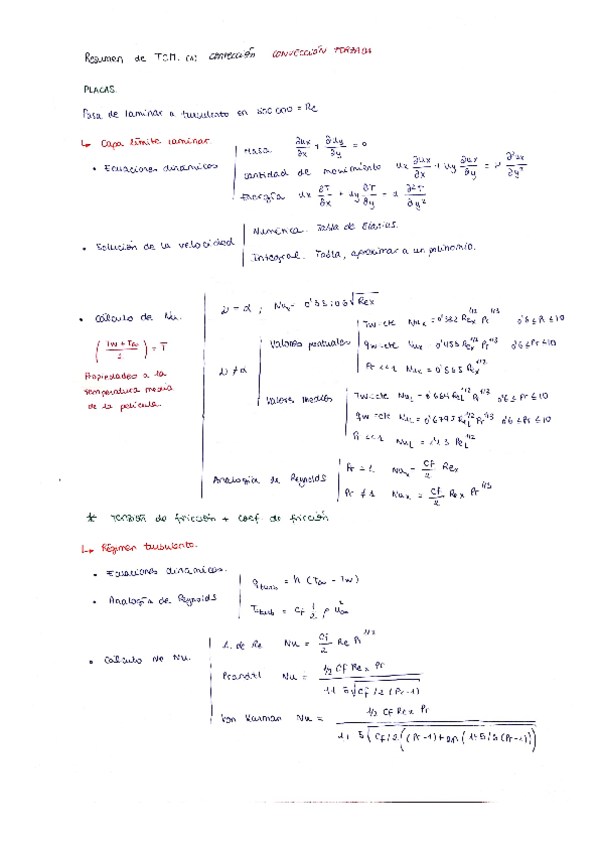 Resumen de TCM. (A) Convección CONVECCIÓN FORZADA
PLACAS.
Pasa de laminar a turbulento en 500 000 = Re
↳ Capa límite laminar.
• Ecuaciones dinámicas
Masa ∂ux/∂x + ∂uy/∂y = 0
Cantidad de movimiento ux ∂ux/∂x + uy ∂ux/∂y = ν ∂²ux/∂y²
Energía ux ∂T/∂x + uy ∂T/∂y = α ∂²T/∂y²
• Solución de la velocidad
Numérica. Tabla de
Integral. Tabla, aproximar a un polinomio.
• Cálculo de Nu.
((Tw + T∞)/2) = T
Propiedades a la
temperatura media
de la película.
ν = α ; Nux = √Rex
ν ≠ α
Valores puntuales
Tw = cte Nux = 0'332 Rex^1/2 Pr^1/3 0'6 ≤ Pr ≤ 10
qw = cte Nux = 0'453 Rex^1/2 Pr^1/3 0'6 ≤ Pr ≤ 10
Pr <<< 1 Nux = 0'565
Valores medios
Tw = cte NuL = 0'664 ReL^1/2 Pr^1/3 0'6 ≤ Pr ≤ 10
qw = cte NuL = 0'6795 ReL^1/2 Pr^1/3 0'6 ≤ Pr ≤ 10
Pr <<< 1 NuL = 1'13
Analogía de Reynolds
Pr = 1. Nux = Cf/2 Rex
Pr ≠ 1 Nux = Cf/2 Rex Pr^1/3
* Tensión de fricción + coef. de fricción
↳ Régimen turbulento.
• Ecuaciones dinámicas.
• Analogía de Reynolds
qturb = h (T∞ - Tw)
τturb = Cf 1/2 ρ u∞²
• Cálculo de Nu.
A. de Re Nu = Cf/2 Re Pr^1/3
Prandtl Nu = (1/2 Cf Rex Pr)/(1 + 5√(Cf/2) (Pr-1))
Von Karman Nu = (1/2 Cf Rex Pr)/(1 + 5√(Cf/2) ((Pr-1) + ln (1 + 5/6 (Pr-1))))